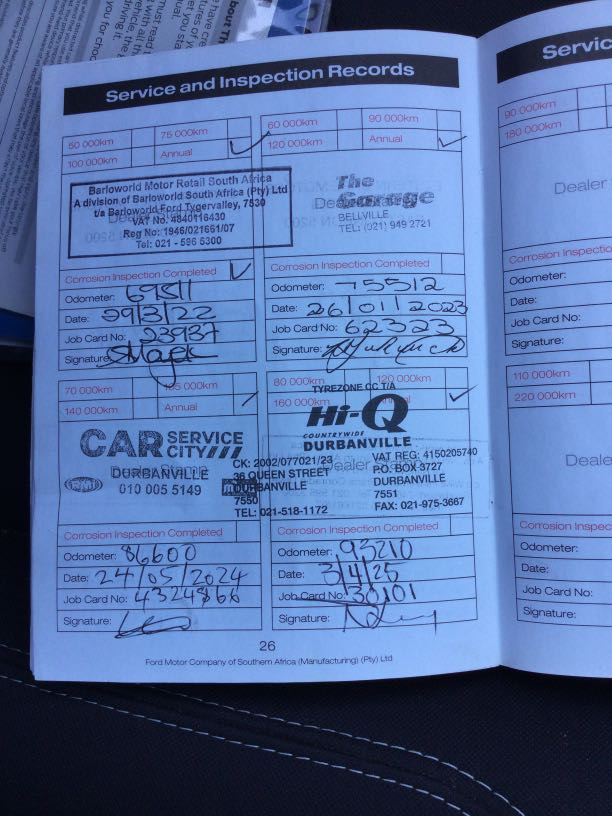 Service and Inspection Records
50 000km
75 000km
100 000km
Annual
Barloworld Motor Retail South Africa
A division of Barloworld South Africa (Pty) Ltd
t/a Barloworld Ford Tygervalley, 7530
VAT No: 4840116430
Reg No: 1946/021661/07
Tel: 021 - 596 5300
Corrosion Inspection Completed
Odometer: 69511
Date: 29/3/22
Job Card No: 23937
Signature:
60 000km
90 000km
120 000km
Annual
The Garage
BELLVILLE
TEL: (021) 949 2721
Corrosion Inspection Completed
Odometer: 75512
Date: 26/01/2023
Job Card No: 62323
Signature:
70 000km
105 000km
140 000km
Annual
CAR SERVICE CITY
DURBANVILLE
010 005 5149
Corrosion Inspection Completed
Odometer: 86600
Date: 24/05/2024
Job Card No: 4324866
Signature:
80 000km
120 000km
160 000km
TYREZONE CC T/A
Hi-Q
COUNTRYWIDE
DURBANVILLE
CK: 2002/077021/23
36 QUEEN STREET
DURBANVILLE
7550
TEL: 021-518-1172
VAT REG: 4150205740
P.O. BOX 3727
DURBANVILLE
7551
FAX: 021-975-3667
Corrosion Inspection Completed
Odometer: 93210
Date: 3/4/25
Job Card No: 30101
Signature:
26
Ford Motor Company of Southern Africa (Manufacturing) (Pty) Ltd
Servic
90 000km
180 000km
Dealer
Corrosion Inspectio
Odometer:
Date:
Job Card No:
Signature:
110 000km
220 000km
Deale
Corrosion Inspec
Odometer:
Date:
Job Card No:
Signature: